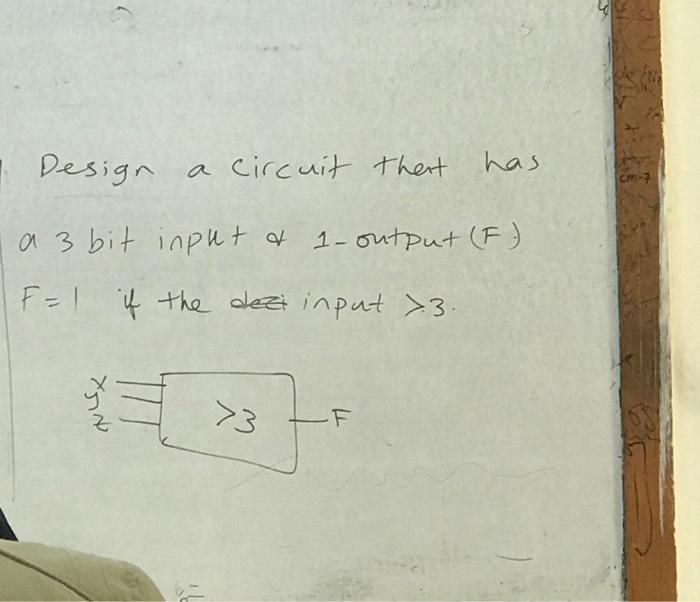 Design a circuit that has
a 3 bit input & 1-output (F)
F=1 if the input >3.
x
y
z
>3
F
cm-7